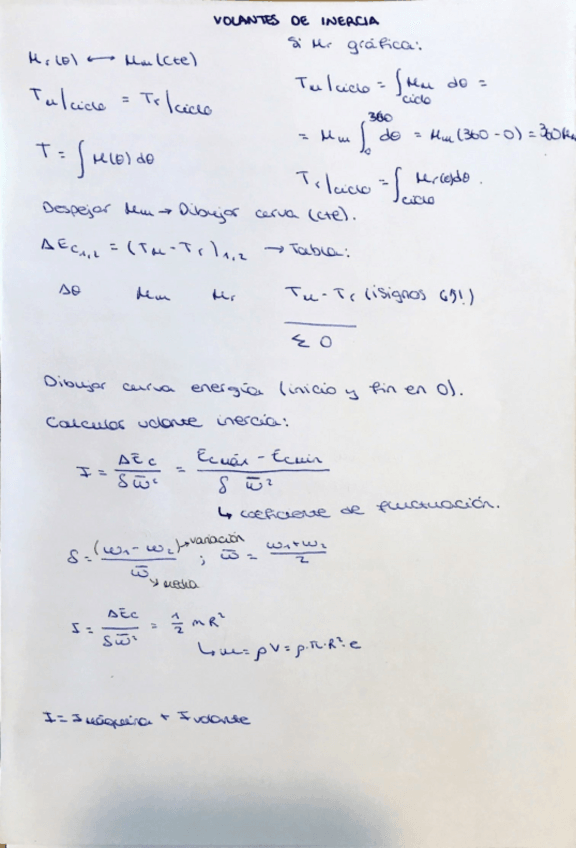 VOLANTES DE INERCIA
Mr(θ) ⟷ Mm(cte)
Tm|ciclo = Tr|ciclo
T = ∫ M(θ) dθ
Si Mr gráfica:
Tm|ciclo = ∫ciclo Mm dθ =
= Mm ∫₀³⁶⁰ dθ = Mm (360 - 0) = 360 Mm
Tr|ciclo = ∫ciclo Mr(θ)dθ.
Despejar Mm → Dibujar curva (cte).
ΔEc₁,₂ = (Tm - Tr)₁,₂ → Tabla:
Δθ Mm Mr Tm - Tr (¡Signos !)
Σ 0
Dibujar curva energía (inicio y fin en 0).
Calcular volante inercia:
I = ΔEc / δ ω̄² = Ecmáx - Ecmin / δ ω̄²
↳ coeficiente de fluctuación.
δ = (ω₁ - ω₂) → variación / ω̄ ↘ media ; ω̄ = ω₁+ω₂ / 2
I = ΔEc / δ ω̄² = 1/2 m R²
↳ m = ρV = ρ·π·R²·e
I = I máquina + I volante